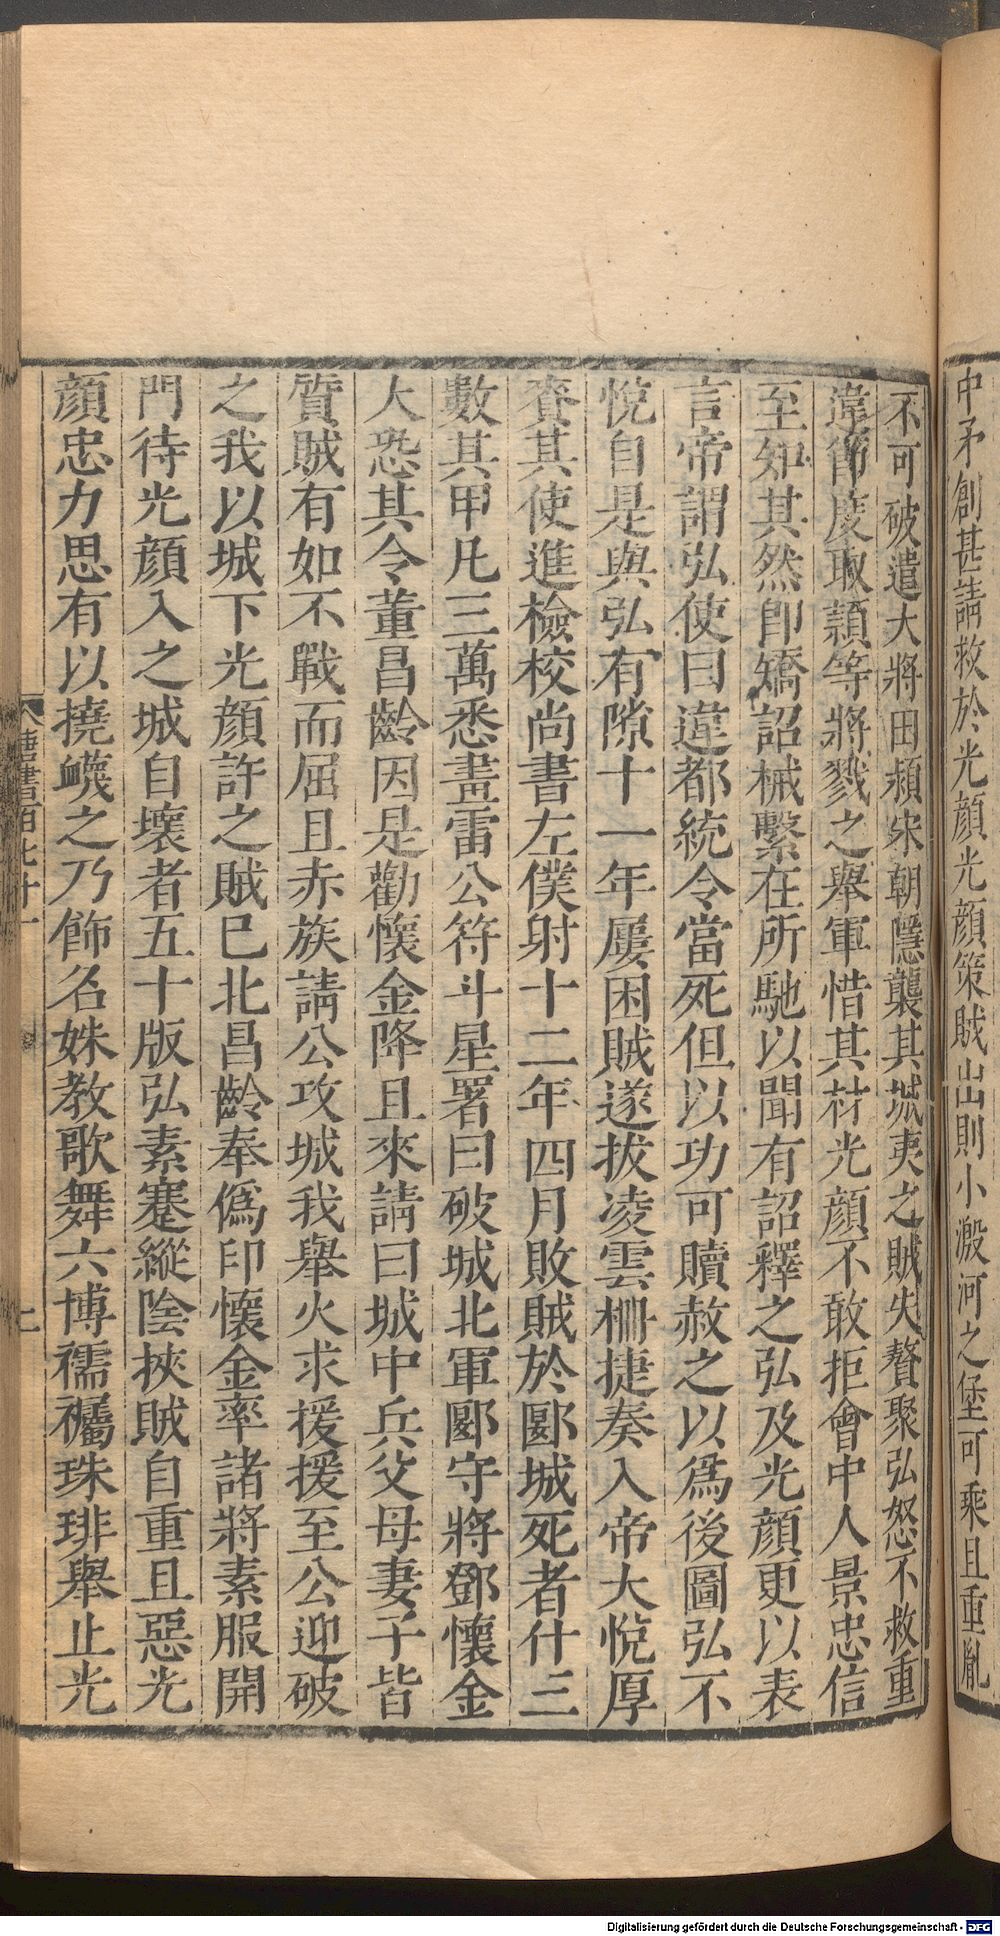 中矛創甚請救於光顔光顔策賊出則小溵河之堡可乘且重胤
不可破遣大將田頴宋朝隱襲其城夷之賊失贅聚弘怒不救重
違節度取頴等將戮之舉軍惜其材光顔不敢拒會中人景忠信
至知其然卽矯詔械繫在所馳以聞有詔釋之弘及光顔更以表
言帝謂弘使曰違都統令當死但以功可贖赦之以爲後圖弘不
悅自是與弘有隙十一年屢困賊遂拔凌雲柵捷奏入帝大悅厚
賚其使進檢校尚書左僕射十二年四月敗賊於郾城死者什三
數其甲凡三萬悉畫雷公符斗星署曰破城北軍郾守將鄧懷金
大恐其令董昌齡因是勸懷金降且來請曰城中兵父母妻子皆
質賊有如不戰而屈且赤族請公攻城我舉火求援援至公迎破
之我以城下光顔許之賊已北昌齡奉僞印懷金率諸將素服開
門待光顔入之城自壞者五十版弘素蹇縱陰挾賊自重且惡光
顔忠力思有以撓衊之乃飾名姝教歌舞六博襦襡珠琲舉止光
唐書百七十一
Digitalisierung gefördert durch die Deutsche Forschungsgemeinschaft - DFG